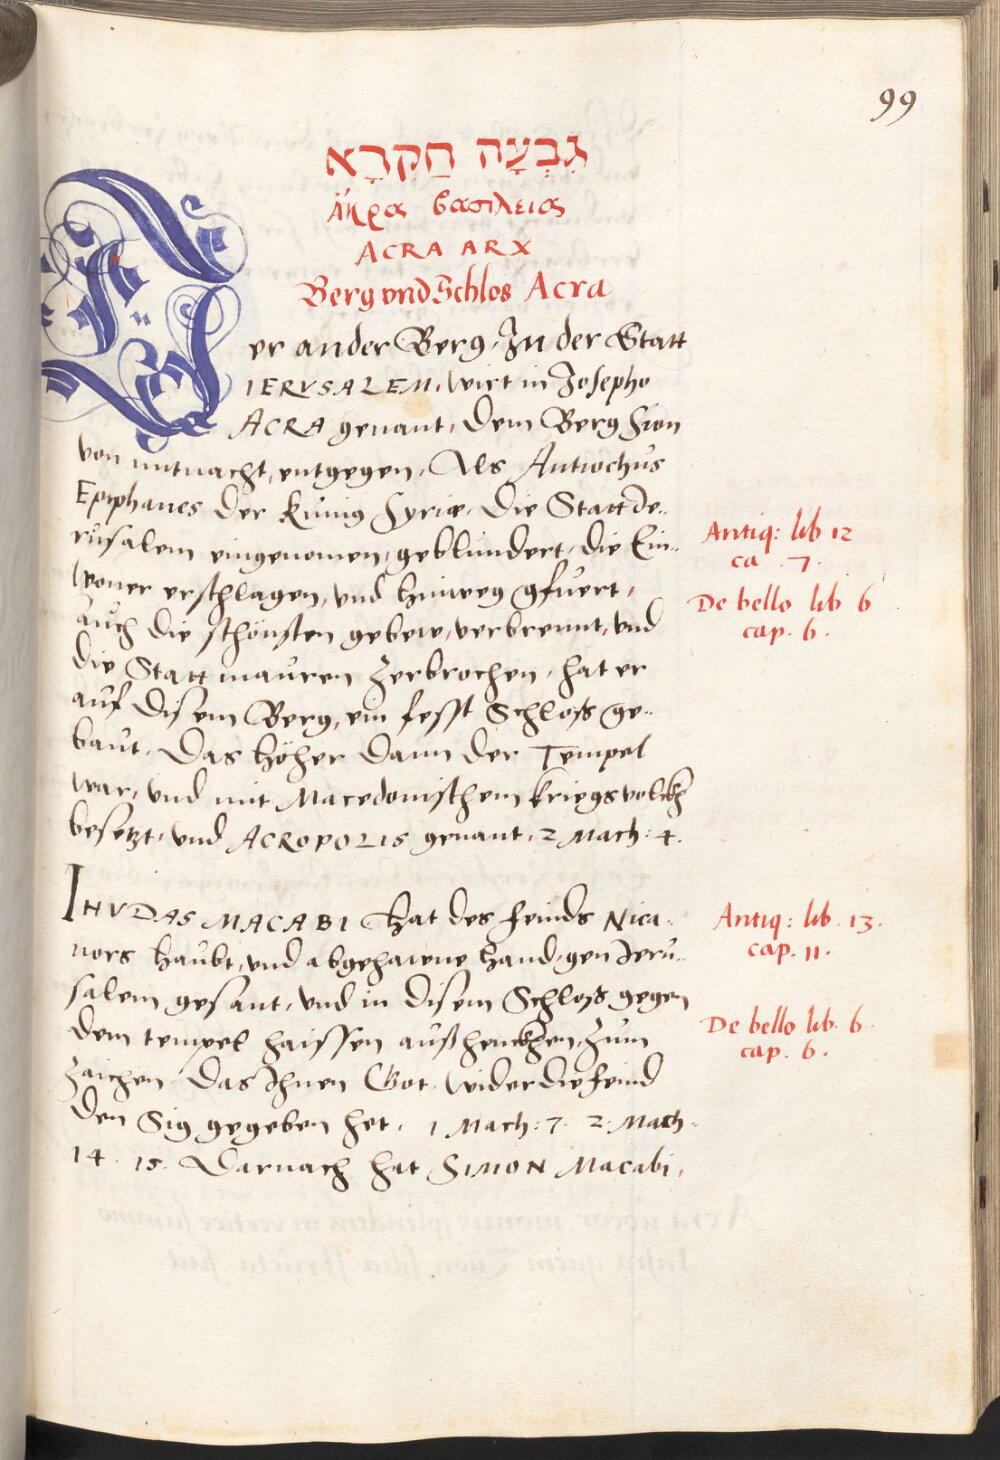 99
גִבְעָה חַקְרָא
Ἄκρα βασιλεια
ACRA ARX
Berg vnd Schlos Acra
Der ander Berg, In der Statt
IERVSALEM, wirt in Josepho
ACRA genant, dem Berg Sion
von mitnacht, entgegen, Als Antiochus
Epiphanes der Künig Syriæ, die Statt Je-
rusalem eingenomen, geblündert, die Ein-
woner erschlagen, vnd hinweg gfüert,
Antiq: lib 12
ca. 7.
auch die schönsten gebew, verbrennt, vnd
De bello lib 6
cap. 6.
die Stattmauren zerbrochen, hat er
auf disem Berg, ein fesst Schloß ge-
baut. Das höher dann der Tempel
war, vnd mit Macedonischem kriegsvolckh
besetzt, vnd ACROPOLIS genant, 2 Mach: 4.
IHVDAS MACABI hat des feinds Nica-
nors haubt, vnd abgehawne hand, gen Jeru-
Antiq: lib. 13.
cap. 11.
salem gesant, vnd in disem Schloß gegen
dem tempel haissen außhenckhen, Zum
De bello lib. 6.
cap. 6.
zaichen Das Ihnen Got wider die feind
den Sig gegeben het. 1 Mach: 7. 2. Mach.
14. 15. Darnach hat SIMON Macabi,